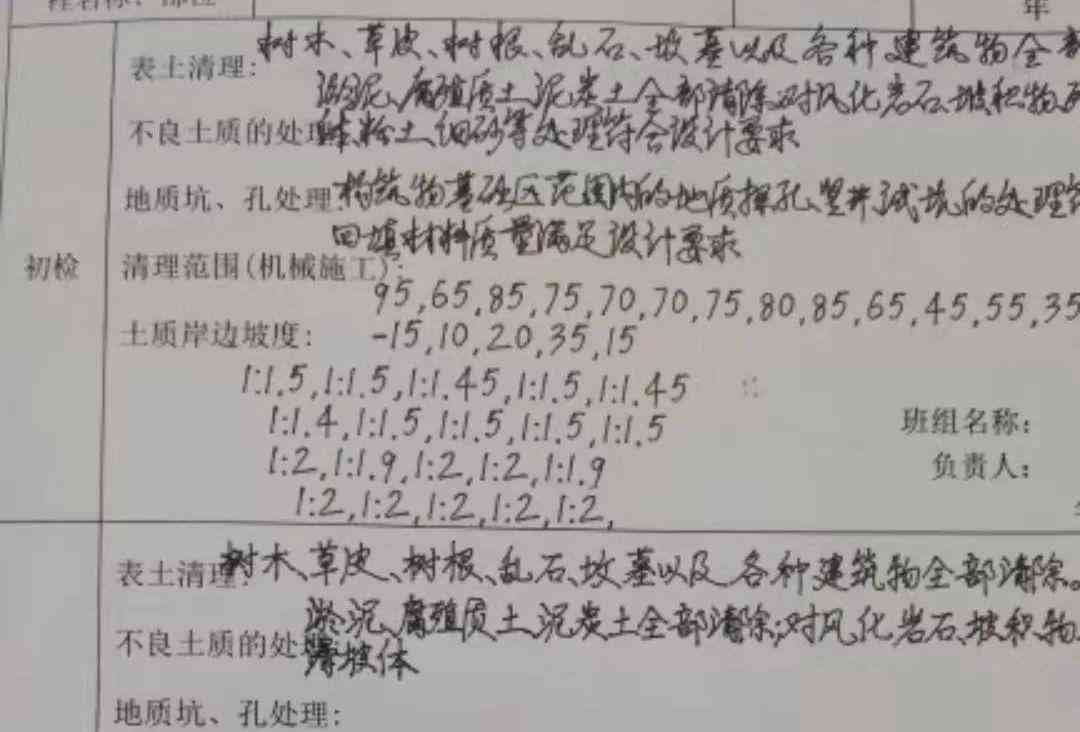 年
树木、草皮、树根、乱石、坟墓以及各种建筑物全部
表土清理:
淤泥、腐殖质土、泥炭土全部清除;对风化岩石、坡积物、
不良土质的处理
体、粉土、细砂等处理符合设计要求
地质坑、孔处理 构筑物基础区范围内的地质探孔、竖井、试坑的处理符
回填材料质量满足设计要求
初检
清理范围(机械施工):
95,65,85,75,70,70,75,80,85,65,45,55,35
土质岸边坡度: -15,10,20,35,15
1:1.5,1:1.5,1:1.45,1:1.5,1:1.45
1:1.4,1:1.5,1:1.5,1:1.5,1:1.5
班组名称:
1:2,1:1.9,1:2,1:2,1:1.9
负责人:
1:2,1:2,1:2,1:2,1:2,
表土清理:树木、草皮、树根、乱石、坟墓以及各种建筑物全部清除。
淤泥、腐殖质土、泥炭土全部清除;对风化岩石、坡积物、
不良土质的处理
滑坡体
地质坑、孔处理: